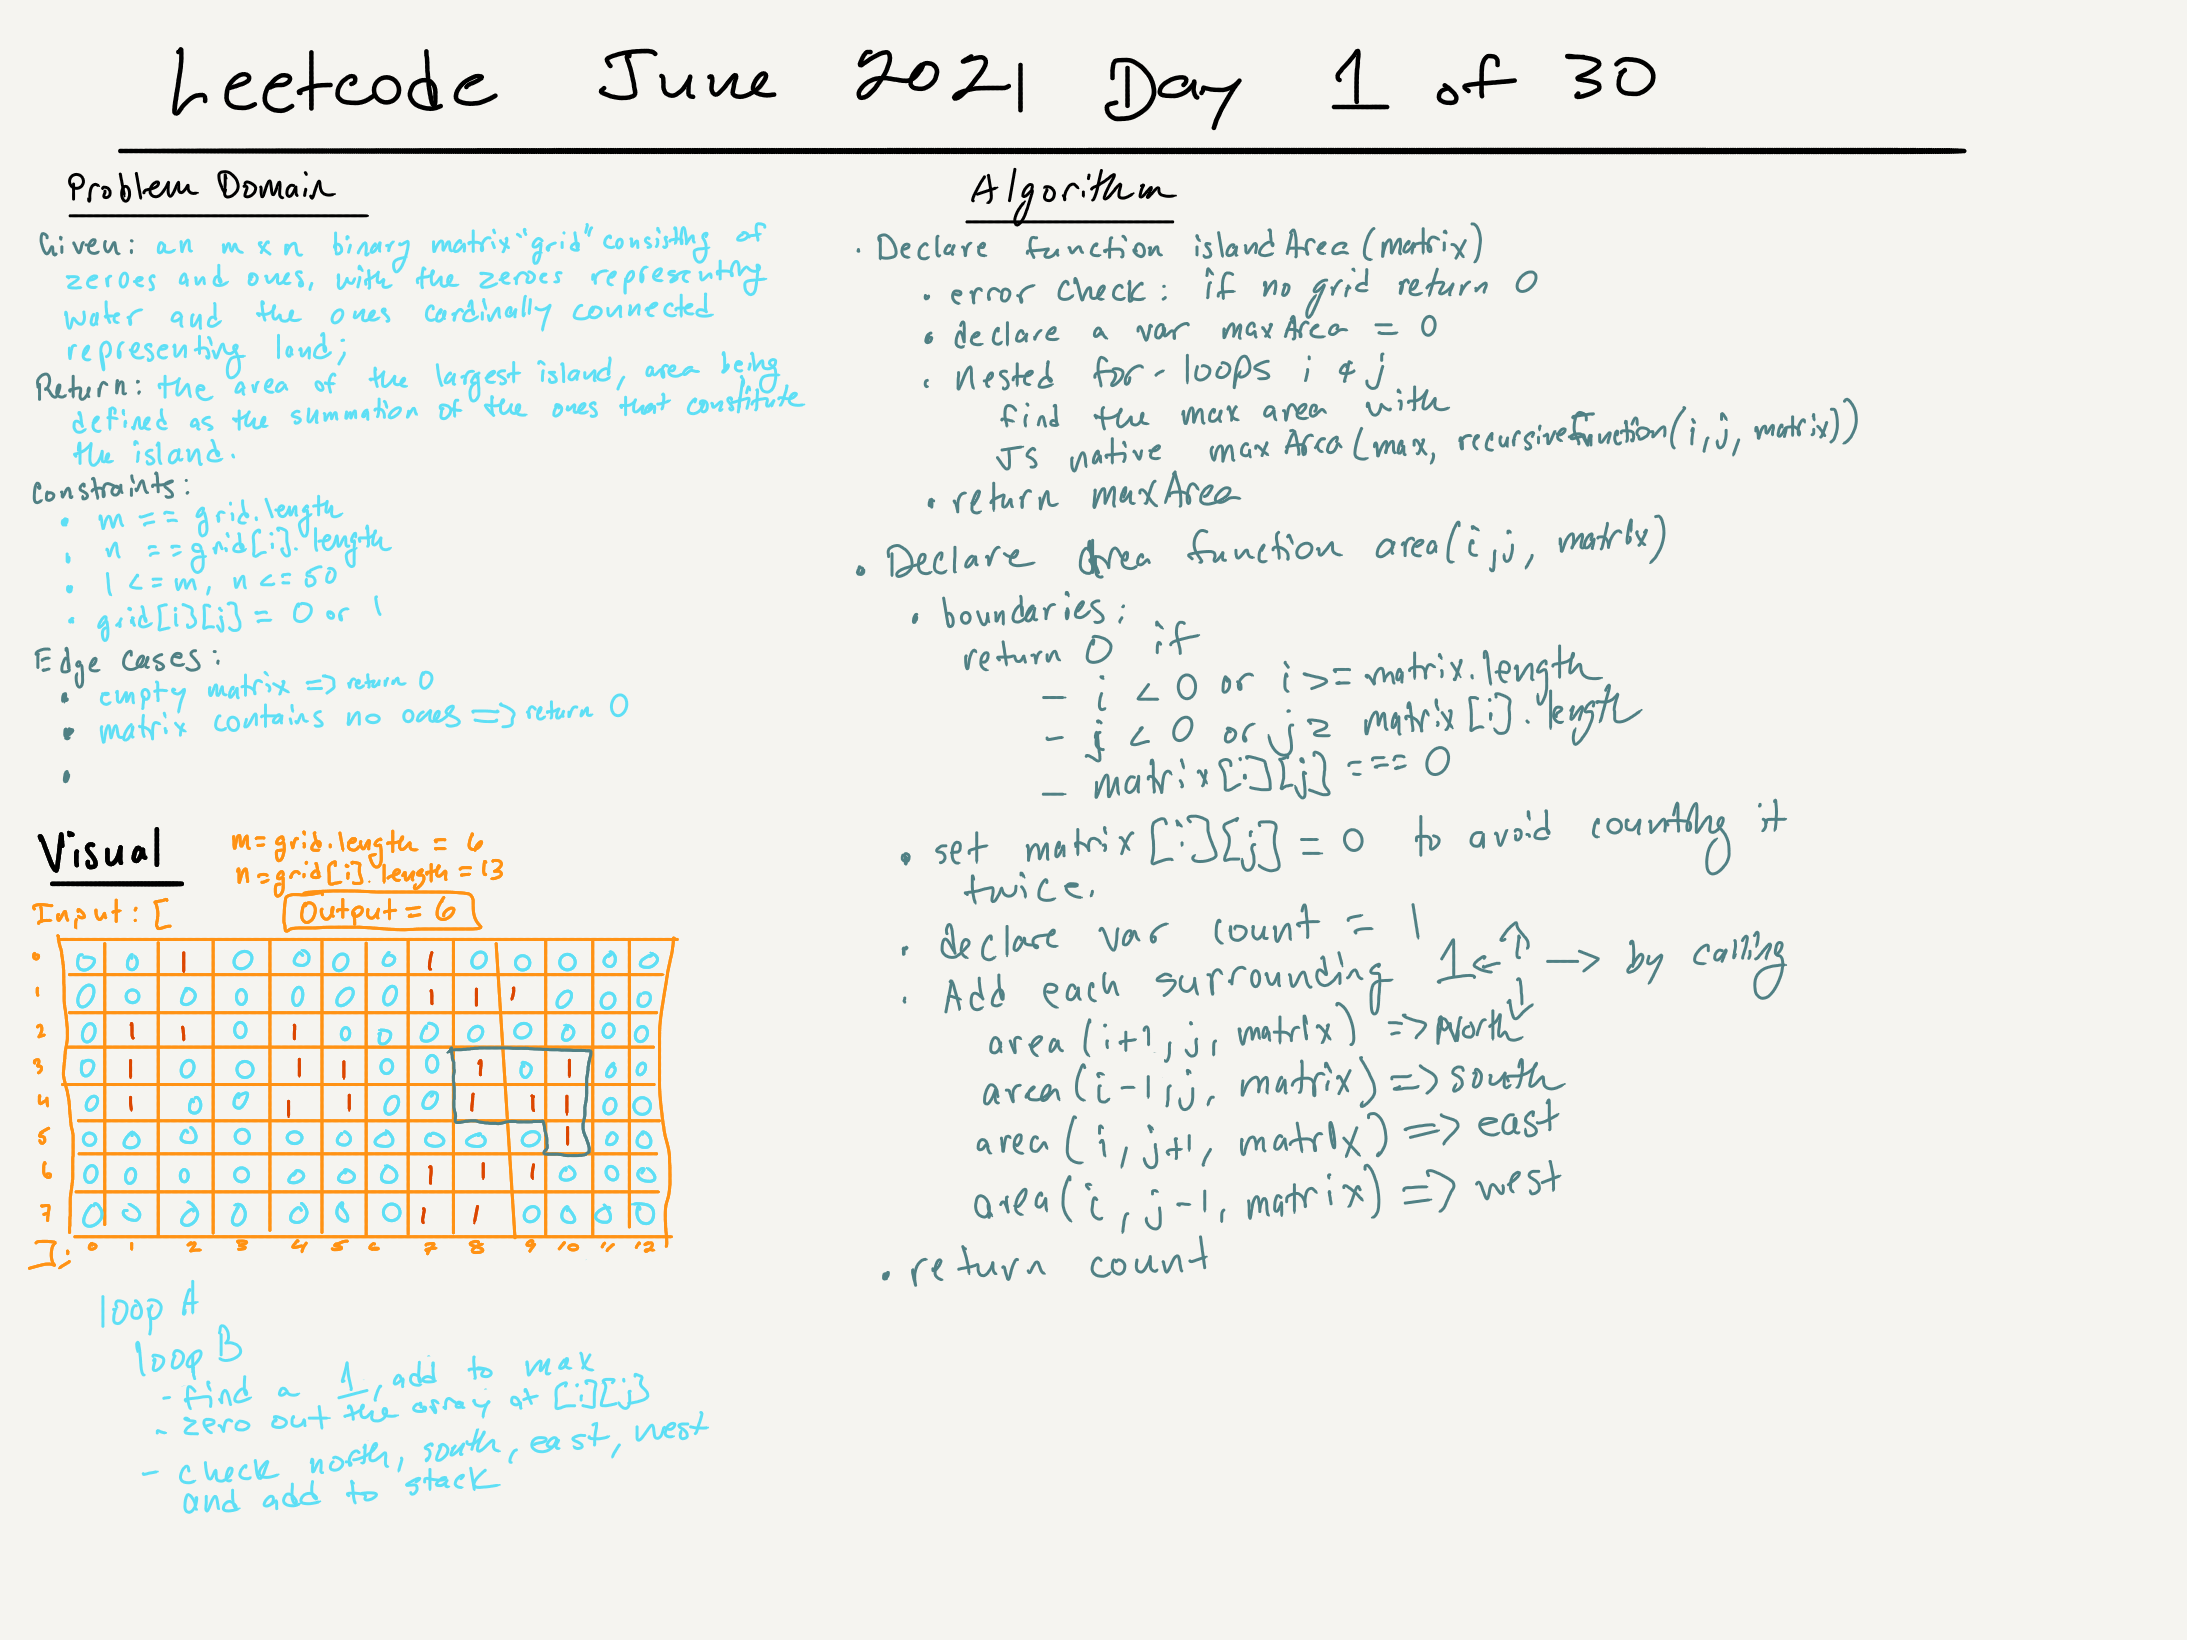 Leetcode June 2021 Day 1 of 30
Problem Domain
Given: an m x n binary matrix "grid" consisting of
zeroes and ones, with the zeroes representing
water and the ones cardinally connected
representing land;
Return: the area of the largest island, area being
defined as the summation of the ones that constitute
the island.
Constraints:
• m == grid.length
• n == grid[i].length
• 1 <= m, n <= 50
• grid[i][j] = 0 or 1
Edge cases:
• empty matrix => return 0
• matrix contains no ones => return 0
•
Visual
m = grid.length = 6
n = grid[i].length = 13
Input: [
Output = 6
0 0 0 1 0 0 0 0 1 0 0 0 0 0
1 0 0 0 0 0 0 0 1 1 1 0 0 0
2 0 1 1 0 1 0 0 0 0 0 0 0 0
3 0 1 0 0 1 1 0 0 1 0 1 0 0
4 0 1 0 0 1 1 0 0 1 1 1 0 0
5 0 0 0 0 0 0 0 0 0 0 1 0 0
6 0 0 0 0 0 0 0 1 1 1 0 0 0
7 0 0 0 0 0 0 0 1 1 0 0 0 0
J: 0 1 2 3 4 5 6 7 8 9 10 11 12
loop A
loop B
- find a 1, add to max
- zero out the array at [i][j]
- check north, south, east, west
and add to stack
Algorithm
• Declare function islandArea(matrix)
• error check: if no grid return 0
• declare a var maxArea = 0
• Nested for-loops i & j
find the max area with
JS native maxArea(max, recursivefunction(i, j, matrix))
• return maxArea
• Declare area function area(i, j, matrix)
• boundaries:
return 0 if
- i < 0 or i >= matrix.length
- j < 0 or j ≥ matrix[i].length
- matrix[i][j] === 0
• set matrix[i][j] = 0 to avoid counting it
twice.
• declare var count = 1
• Add each surrounding 1 ← ↑ ↓ → by calling
area(i+1, j, matrix) => North
area(i-1, j, matrix) => south
area(i, j+1, matrix) => east
area(i, j-1, matrix) => west
• return count